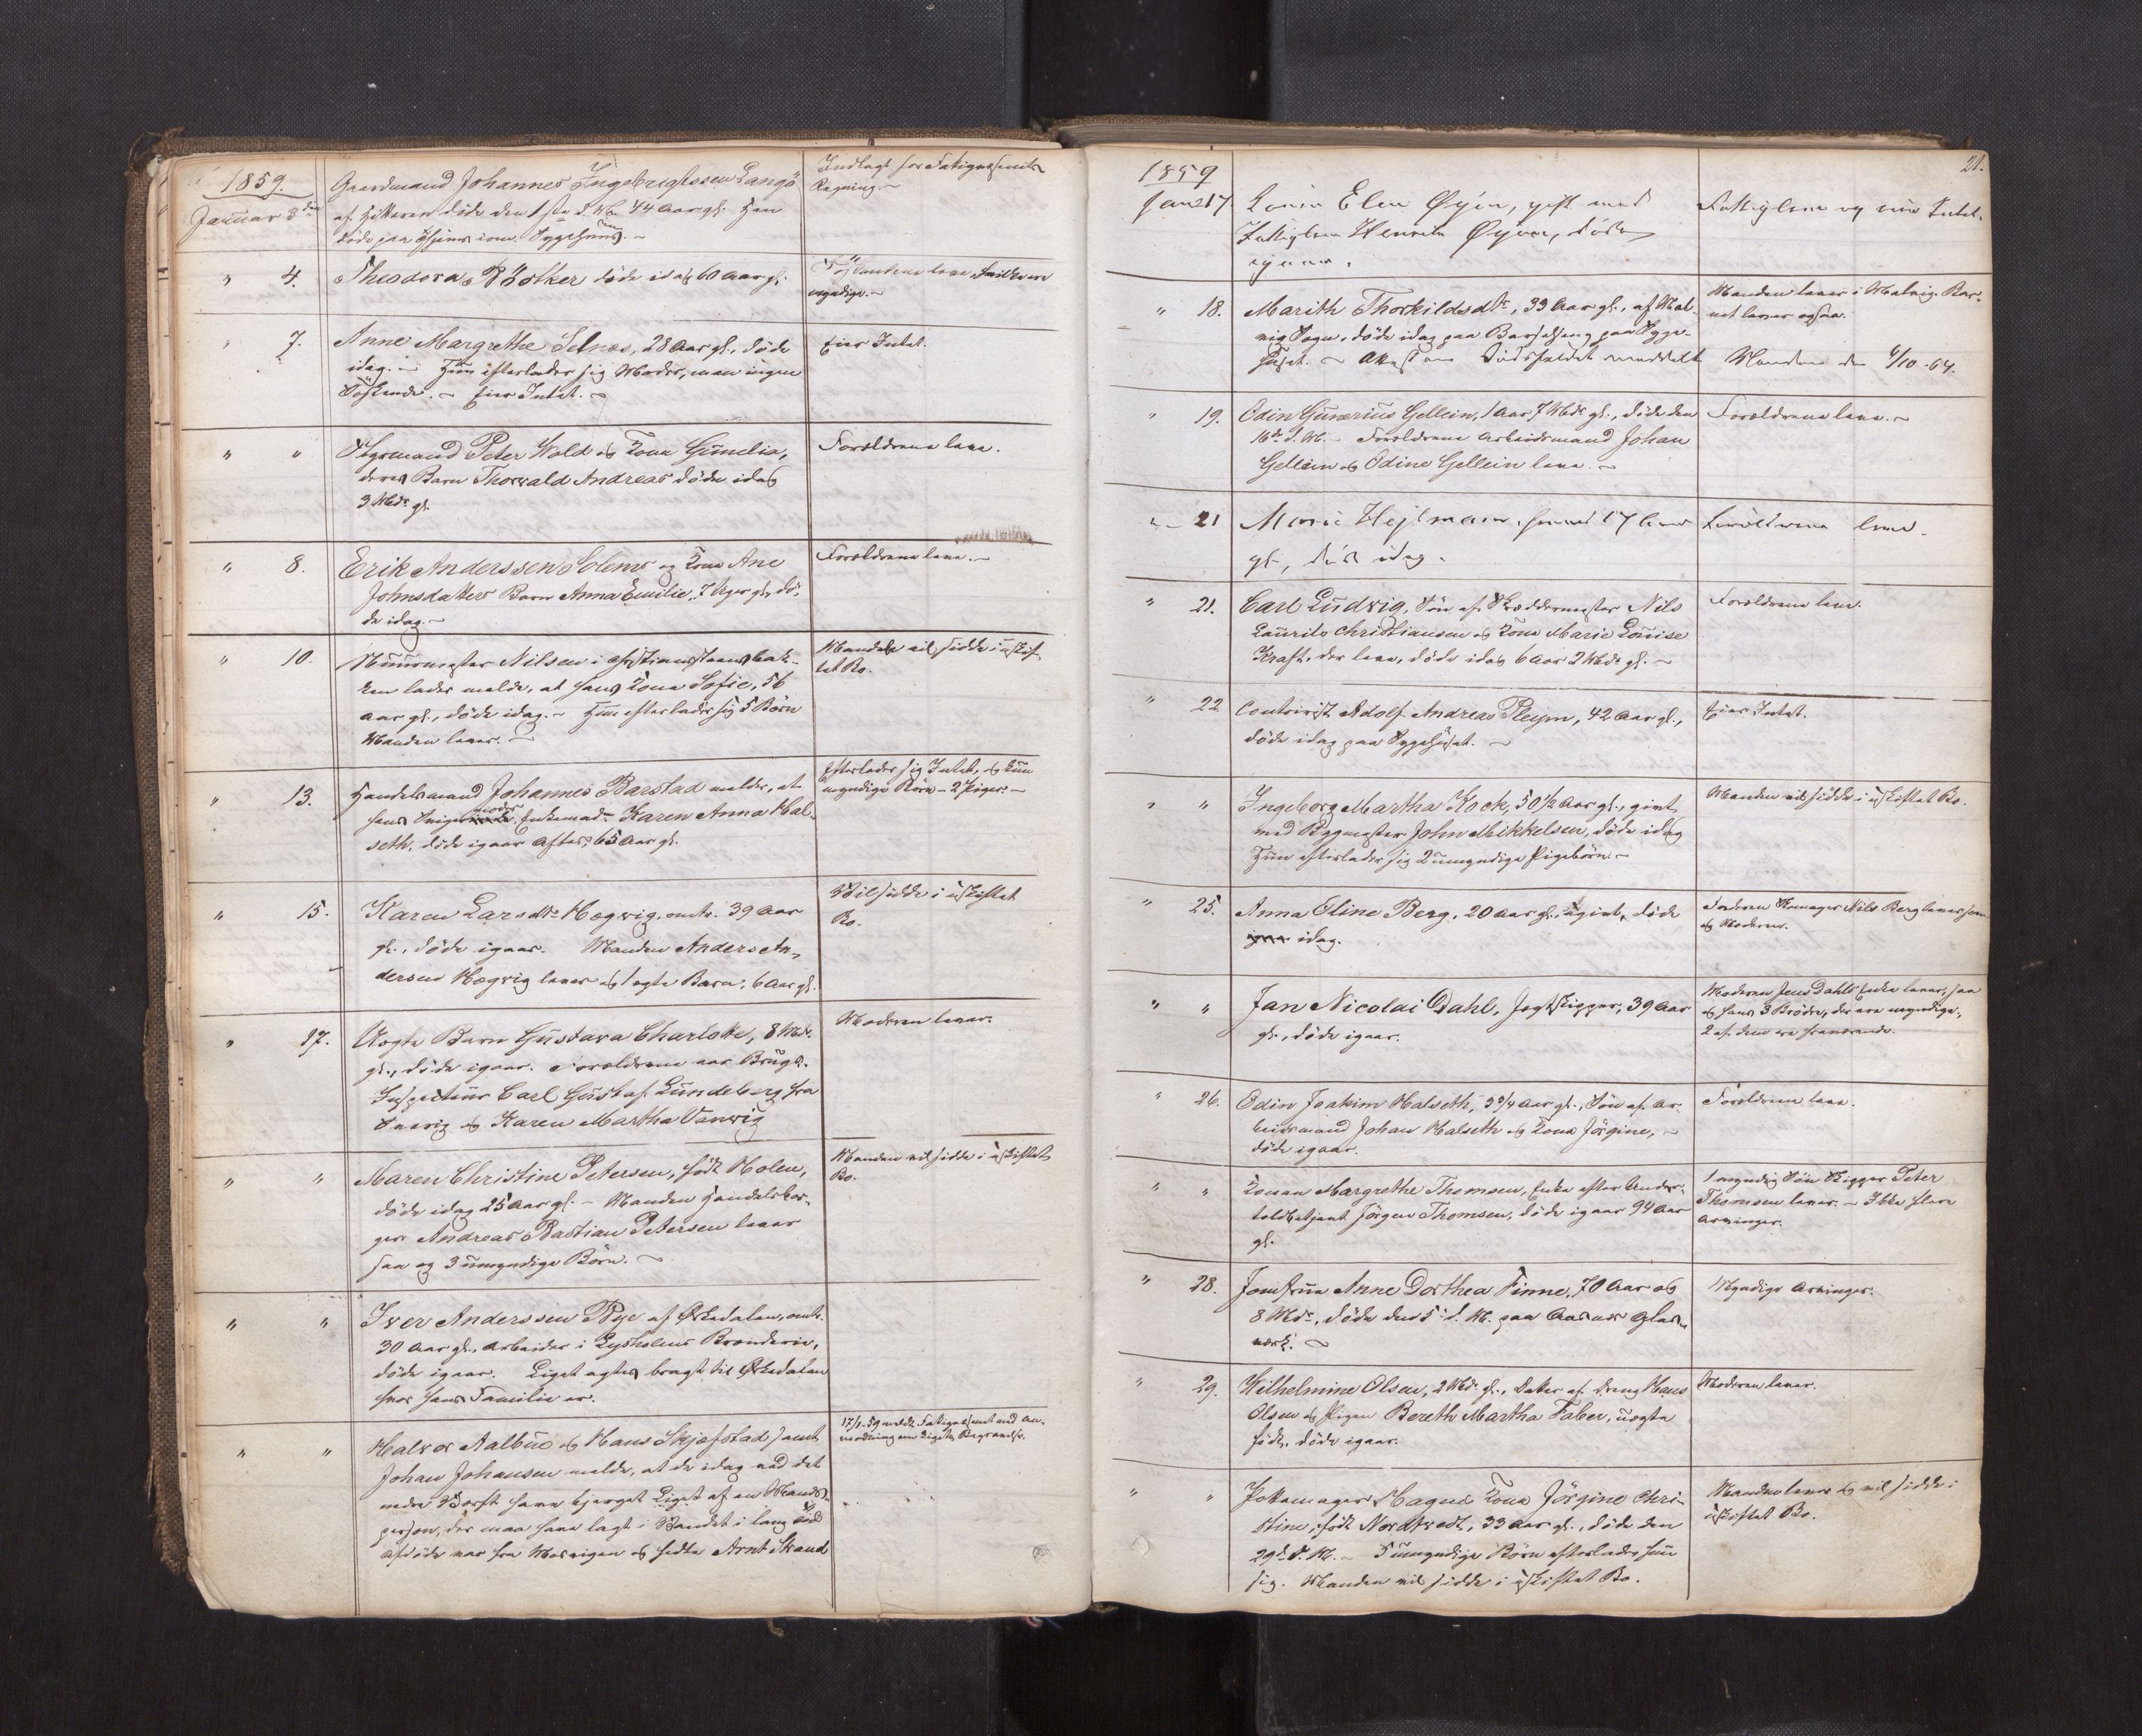 1859.
Januar 3die
Gaardmand Johannes Ingebrigtssen Langö
af Hitteren döde den 1ste d. M. 44 Aar gl. Han
döde paa Sygehuus. -
Indlagt for Fatigvæsenets
Regning. -
" 4.
Theodora Bötker döde idag 60 Aar gl.
Söskende leve, hvilke ere
myndige. -
" 7.
Anne Margrethe Selnes, 28 Aar gl., döde
idag. - Hun efterlader sig Moder, men ingen
Söskende. - Eier Intet. -
Eier Intet.
" "
Styrmand Peter Wold og Kone Gunelia,
deres Barn Thorvald Andreas döde idag
3 Mdr gl.
Forældrene leve.
" 8.
Erik Anderssen Solem og Kone Ane
Johnsdatters Barn Anna Emilie, 7 Uger gl., dö-
de idag. -
Forældrene leve. -
" 10.
Muurmester Nilsen i Christiansteensbak-
ken lader melde, at hans Kone Sofie, 56
Aar gl., döde idag. - Hun efterlader sig 5 Börn
Manden lever. -
Manden vil sidde i uskif-
tet Bo.
" 13.
Handelsmand Johannes Barstad melder, at
hans Sviger moder Enkemad. Karen Anna Hal-
seth, döde igaar Aftes, 65 Aar gl.
Efterlader sig Intet, og kun
myndige Börn - 2 Piger. -
" 15.
Karen Larsdtr Hægvig, omtr. 39 Aar
gl., döde igaar. Manden Anders An-
dersen Hægvig lever og 1 ægte Barn, 6 Aar gl.
Vil sidde i uskiftet
Bo.
" 17.
Uægte Barn Gustava Charlotte, 8 Mdr.
gl., döde igaar. Forældrene var Brugs-
Inspecteur Carl Gustaf Lundeberg fra
Sverig og Karen Martha Vanvig
Moderen lever.
" "
Maren Christine Petersen, födt Holen,
döde idag 25 Aar gl. - Manden Handelsbor-
ger Andreas Bastian Petersen lever
saa og 3 umyndige Börn. -
Manden vil sidde i uskiftet
Bo.
" "
Iver Anderssen Rye af Ørkedalen, omtr.
30 Aar gl., Arbeider i Lysholms Brænderie,
döde igaar. Liget agtes bragt til Ørkedalen
hvor hans Familie er.
" "
Halvor Aalbue og Hans Skjefstad samt
Johan Johansen melde, at de idag ved det
nedre Værft have bjerget Liget af en Mands-
person, der maa have lagt i Vandet i lang Tid
Afdöde var fra Mosvigen og hedte Arnt Strand
17/1-59 meldt Fatigvæsenet med An-
modning om Ligets Begravelse.
21.
1859
Janr 17
Konen Elen Øyen, gift med
Fattiglem Henrik Øyen, döde
igaar.
Fattiglem og eier Intet.
" 18.
Marith Thorkildsdtr, 33 Aar gl., af Mal-
vig Sogn, döde idag paa Barselseng paa Syge-
huset. - Attest om Dödsfaldet meddelt
Manden lever i Malvig. Bar-
net lever ogsaa.
Manden den 6/10-64.
" 19.
Odin Gunerius Gellein, 1 Aar 7 Mdr gl., döde den
16de d. M. - Forældrene Arbeidsmand Johan
Gellein og Odine Gellein leve. -
Forældrene leve. -
" 21
Marie Hejlmann, 17 Aar
gl., död idag.
Forældrene leve.
" 21.
Carl Ludvig, Sön af Skræddermester Nils
Laurits Christiansen og Kone Marie Louise
Kraft, der leve, döde idag 6 Aar 2 Mdr gl. -
Forældrene leve.
" 22
Contorist Adolf Andreas Pleym, 42 Aar gl.,
döde idag paa Sygehuset. -
Eier Intet.
" "
Ingeborg Martha Kock, 50 1/2 Aar gl., givt
med Bygmester John Mikkelsen, döde idag
Hun efterlader sig 2 umyndige Pigebörn. -
Manden vil sidde i uskiftet Bo.
" 25.
Anna Oline Berg, 20 Aar gl., ugivt, döde
igaar idag.
Faderen Skomager Nils Berg lever saavel
og Moderen.
" "
Jan Nicolai Dahl, Jagtskipper, 39 Aar
gl., döde igaar.
Moderen Jens Dahls Enke lever, saa
og hans 3 Brödre, der ere myndige,
2 af dem ere fraværende.
" 26.
Odin Joakim Halseth, 3 3/4 Aar gl., Sön af Ar-
beidsmand Johan Halseth og Kone Jörgine, -
döde igaar.
Forældrene leve.
" "
Konen Margrethe Thomsen, Enke efter Under-
toldbetjent Jörgen Thomsen, döde igaar 94 Aar
gl.
1 myndig Sön Skipper Peter
Thomsen lever. - Ikke flere
Arvinger.
" 28.
Jomfrue Anne Dorthea Finne, 70 Aar og
8 Mdr, döde den 5. d. M. paa Aasnes Glas-
værk. -
Myndige Arvinger.
" 29.
Wilhelmine Olsen, 2 Mdr gl., Datter af Dreng Hans
Olsen og Pigen Bereth Martha Faber, uægte
födt, döde igaar.
Moderen lever.
" "
Potemager Hagens Kone Jörgine Chri-
stine, födt Nordtvedt, 33 Aar gl., döde den
29de d. M. - 5 umyndige Börn efterlader hun
sig. Manden vil sidde i uskiftet Bo.
Manden lever og vil sidde i
uskiftet Bo.